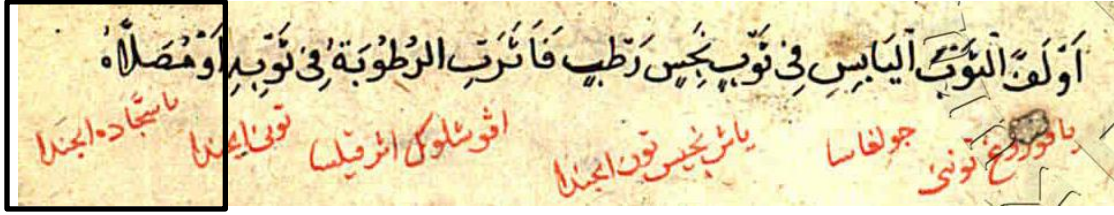 اَوْلَفَّ الثَّوْبَ اَلْيَابِسَ فِى ثَوْبٍ نَجِسٍ رَطْبٍ فَاَثَّرَتِ الرُّطُوْبَةُ فِى ثَوْبِهِ اَوْ مُصَلَّاهُ
يا قورو توننى جولغاسا يا نجيس تون ايجندا اثر قيلسا تونى ايجندا يا سجاده ايجندا